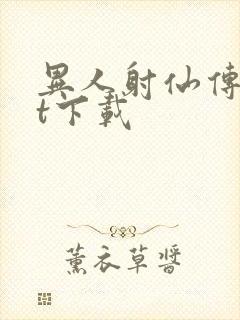 異人射仙傳
t下載
薰衣草醬